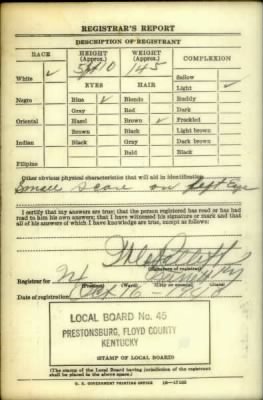 REGISTRAR'S REPORT
DESCRIPTION OF REGISTRANT
RACE HEIGHT (Approx.) WEIGHT (Approx.) COMPLEXION
5 10 145
White ✓ Sallow
EYES HAIR Light ✓
Negro Blue ✓ Blonde Ruddy
Gray Red Dark
Oriental Hazel Brown ✓ Freckled
Brown Black Light brown
Indian Black Gray Dark brown
Bald Black
Filipino
Other obvious physical characteristics that will aid in identification
Small Scar on left Eye
I certify that my answers are true; that the person registered has read or has had
read to him his own answers; that I have witnessed his signature or mark and that all
of his answers of which I have knowledge are true, except as follows:
(Signature of registrar)
Registrar for
(Precinct) (Ward) (City or county) (State)
Date of registration Oct 16
LOCAL BOARD No. 45
PRESTONSBURG, FLOYD COUNTY
KENTUCKY
(STAMP OF LOCAL BOARD)
(The stamp of the Local Board having jurisdiction of the registrant
shall be placed in the above space.)
U. S. GOVERNMENT PRINTING OFFICE 16—17105